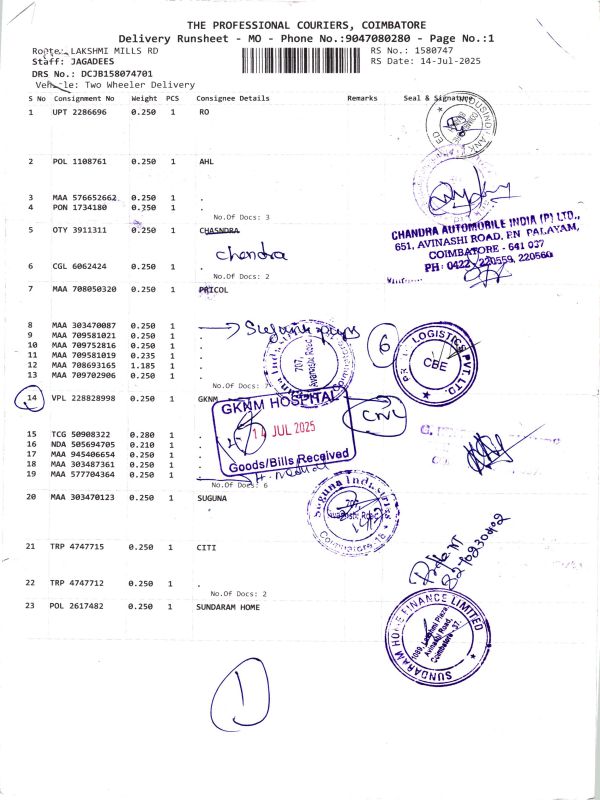 THE PROFESSIONAL COURIERS, COIMBATORE
Delivery Runsheet - MO - Phone No.:9047080280 - Page No.:1
Route: LAKSHMI MILLS RD RS No.: 1580747
Staff: JAGADEES RS Date: 14-Jul-2025
DRS No.: DCJB158074701
Vehicle: Two Wheeler Delivery
S No Consignment No Weight PCS Consignee Details Remarks Seal & Signature
1 UPT 2286696 0.250 1 RO
2 POL 1108761 0.250 1 AHL
3 MAA 576652662 0.250 1 .
4 PON 1734180 0.250 1 .
No.Of Docs: 3
CHANDRA AUTOMOBILE INDIA (P) LTD.,
651, AVINASHI ROAD, P.N. PALAYAM,
COIMBATORE - 641 037
PH: 0422 - 220559, 220560
5 OTY 3911311 0.250 1 CHASNDRA
chandra
6 CGL 6062424 0.250 1 .
No.Of Docs: 2
7 MAA 708050320 0.250 1 PRICOL
8 MAA 303470087 0.250 1 .
9 MAA 709581021 0.250 1 .
10 MAA 709752816 0.250 1 .
11 MAA 709581019 0.235 1 .
12 MAA 708693165 1.185 1 .
13 MAA 709702906 0.250 1 .
No.Of Docs:
707,
Avanashi Road
6
LOGISTICS PVT. LTD.
CBE
14 VPL 228828998 0.250 1 GKNM
GKNM HOSPITAL
14 JUL 2025
Goods/Bills Received
15 TCG 50908322 0.280 1 .
16 NDA 505694705 0.210 1 .
17 MAA 945406654 0.250 1 .
18 MAA 303487361 0.250 1 .
19 MAA 577704364 0.250 1 .
No.Of Docs: 6
20 MAA 303470123 0.250 1 SUGUNA
Suguna Industries
707,
Avanashi Road
Coimbatore-18
21 TRP 4747715 0.250 1 CITI
22 TRP 4747712 0.250 1 .
No.Of Docs: 2
23 POL 2617482 0.250 1 SUNDARAM HOME
SUNDARAM HOME FINANCE LIMITED
1089, Lakshmi Plaza
Avinashi Road,
Coimbatore - 37.
1